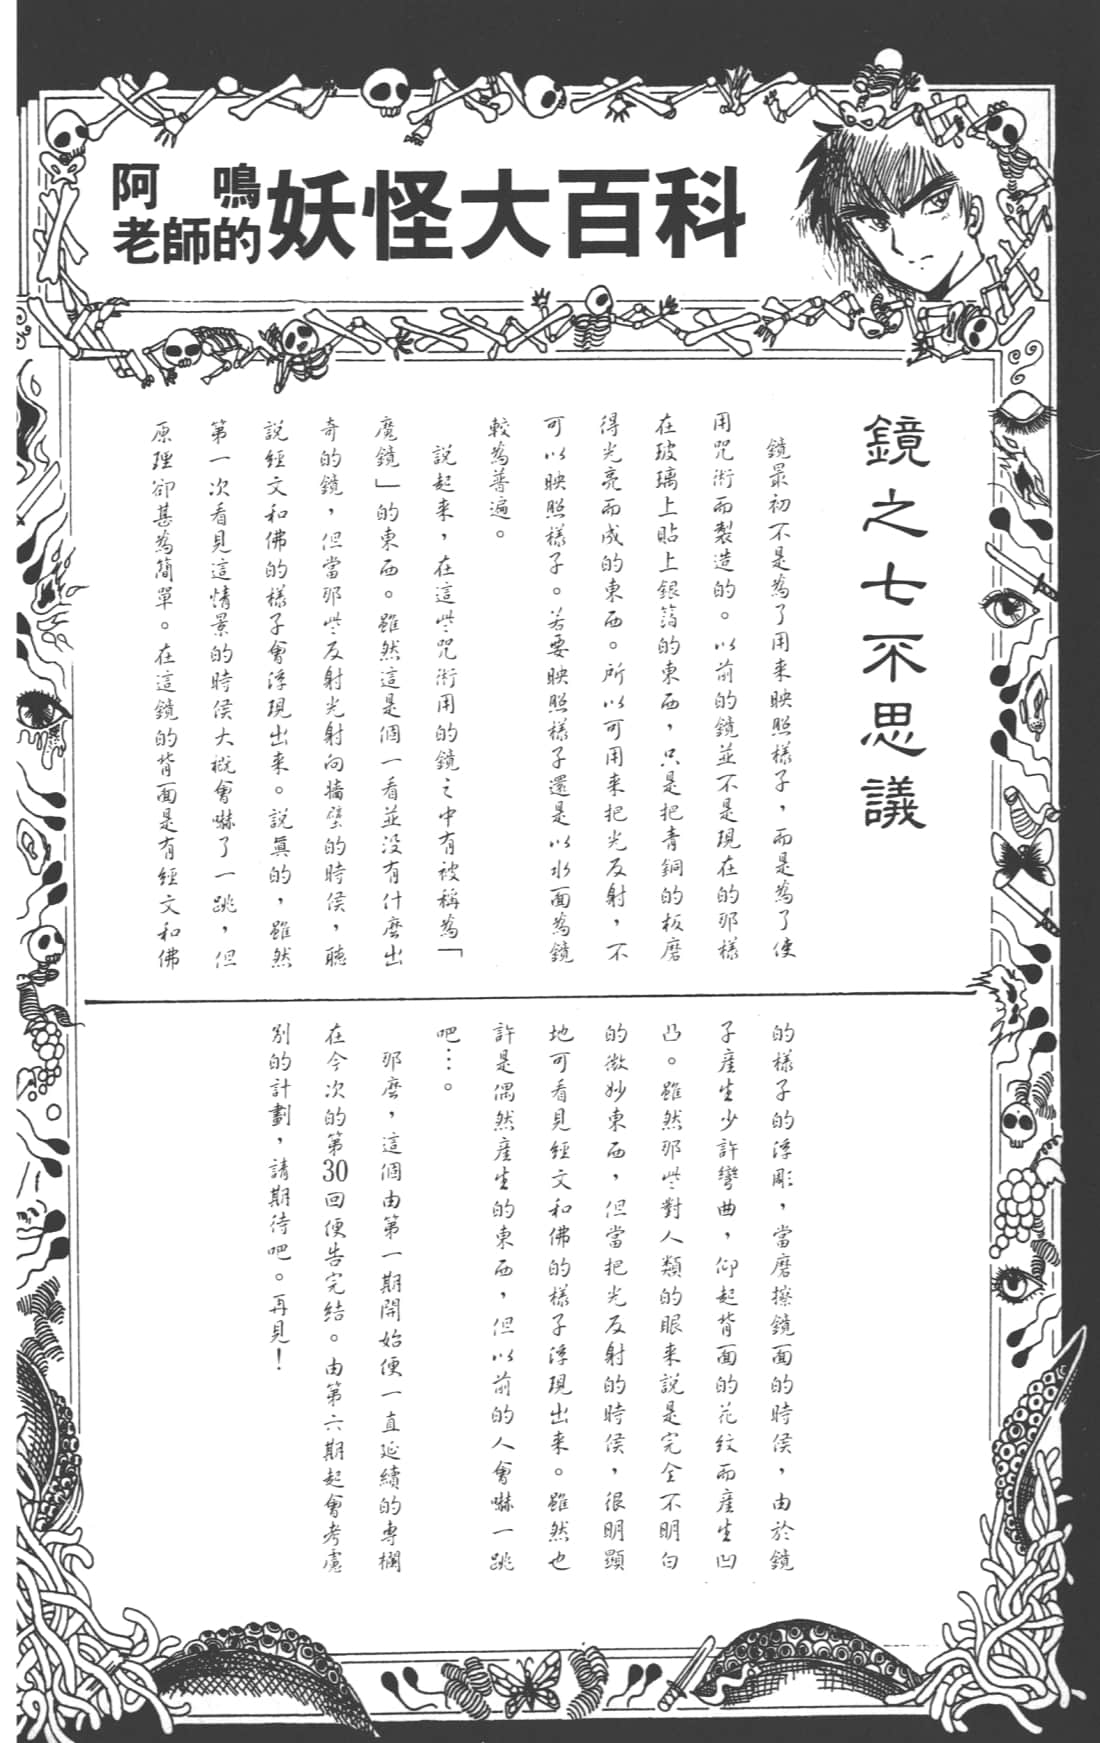 阿鳴
老師的
妖怪大百科
鏡之七不思議
鏡最初不是為了用来映照樣子，而是為了使
用咒術而製造的。以前的鏡並不是現在的那樣
在玻璃上貼上銀箔的東西，只是把青銅的板磨
得光亮而成的東西。所以可用来把光反射，不
可以映照樣子。若要映照樣子還是以水面為鏡
較為普遍。
說起来，在這些咒術用的鏡之中有被稱為「
魔鏡」的東西。雖然這是個一看並没有什麼出
奇的鏡，但當那些反射光射向牆壁的時侯，聽
說經文和佛的樣子會浮現出来。說眞的，雖然
第一次看見這情景的時侯大概會嚇了一跳，但
原理卻甚為簡單。在這鏡的背面是有經文和佛
的樣子的浮彫，當磨擦鏡面的時侯，由於鏡
子產生少許彎曲，仰起背面的花紋而產生凹
凸。雖然那些對人類的眼来說是完全不明白
的微妙東西，但當把光反射的時侯，很明顯
地可看見經文和佛的樣子浮現出来。雖然也
許是偶然產生的東西，但以前的人會嚇一跳
吧…。
那麼，這個由第一期開始便一直延續的專欄
在今次的第30回便告完结。由第六期起會考慮
別的計劃，請期待吧。再見！